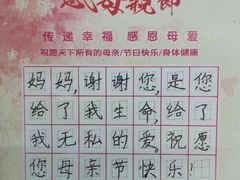 感母親節
传递幸福 感恩母爱
祝愿天下所有的母亲/节日快乐/身体健康
妈妈,谢谢您,是您
给了我生命,给了
我无私的爱。祝愿
您母亲节快乐!